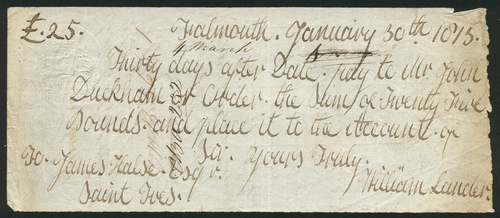 £25.
Falmouth. January 30th 1815.
4 March
Thirty days after Date. pay to Mr. John
Duckham or Order. the Sum of Twenty Five
Pounds. and place it to the Account. of
Sir. Yours Truly.
To. James Halse. Esqr.
William Lander.
Saint Ives.